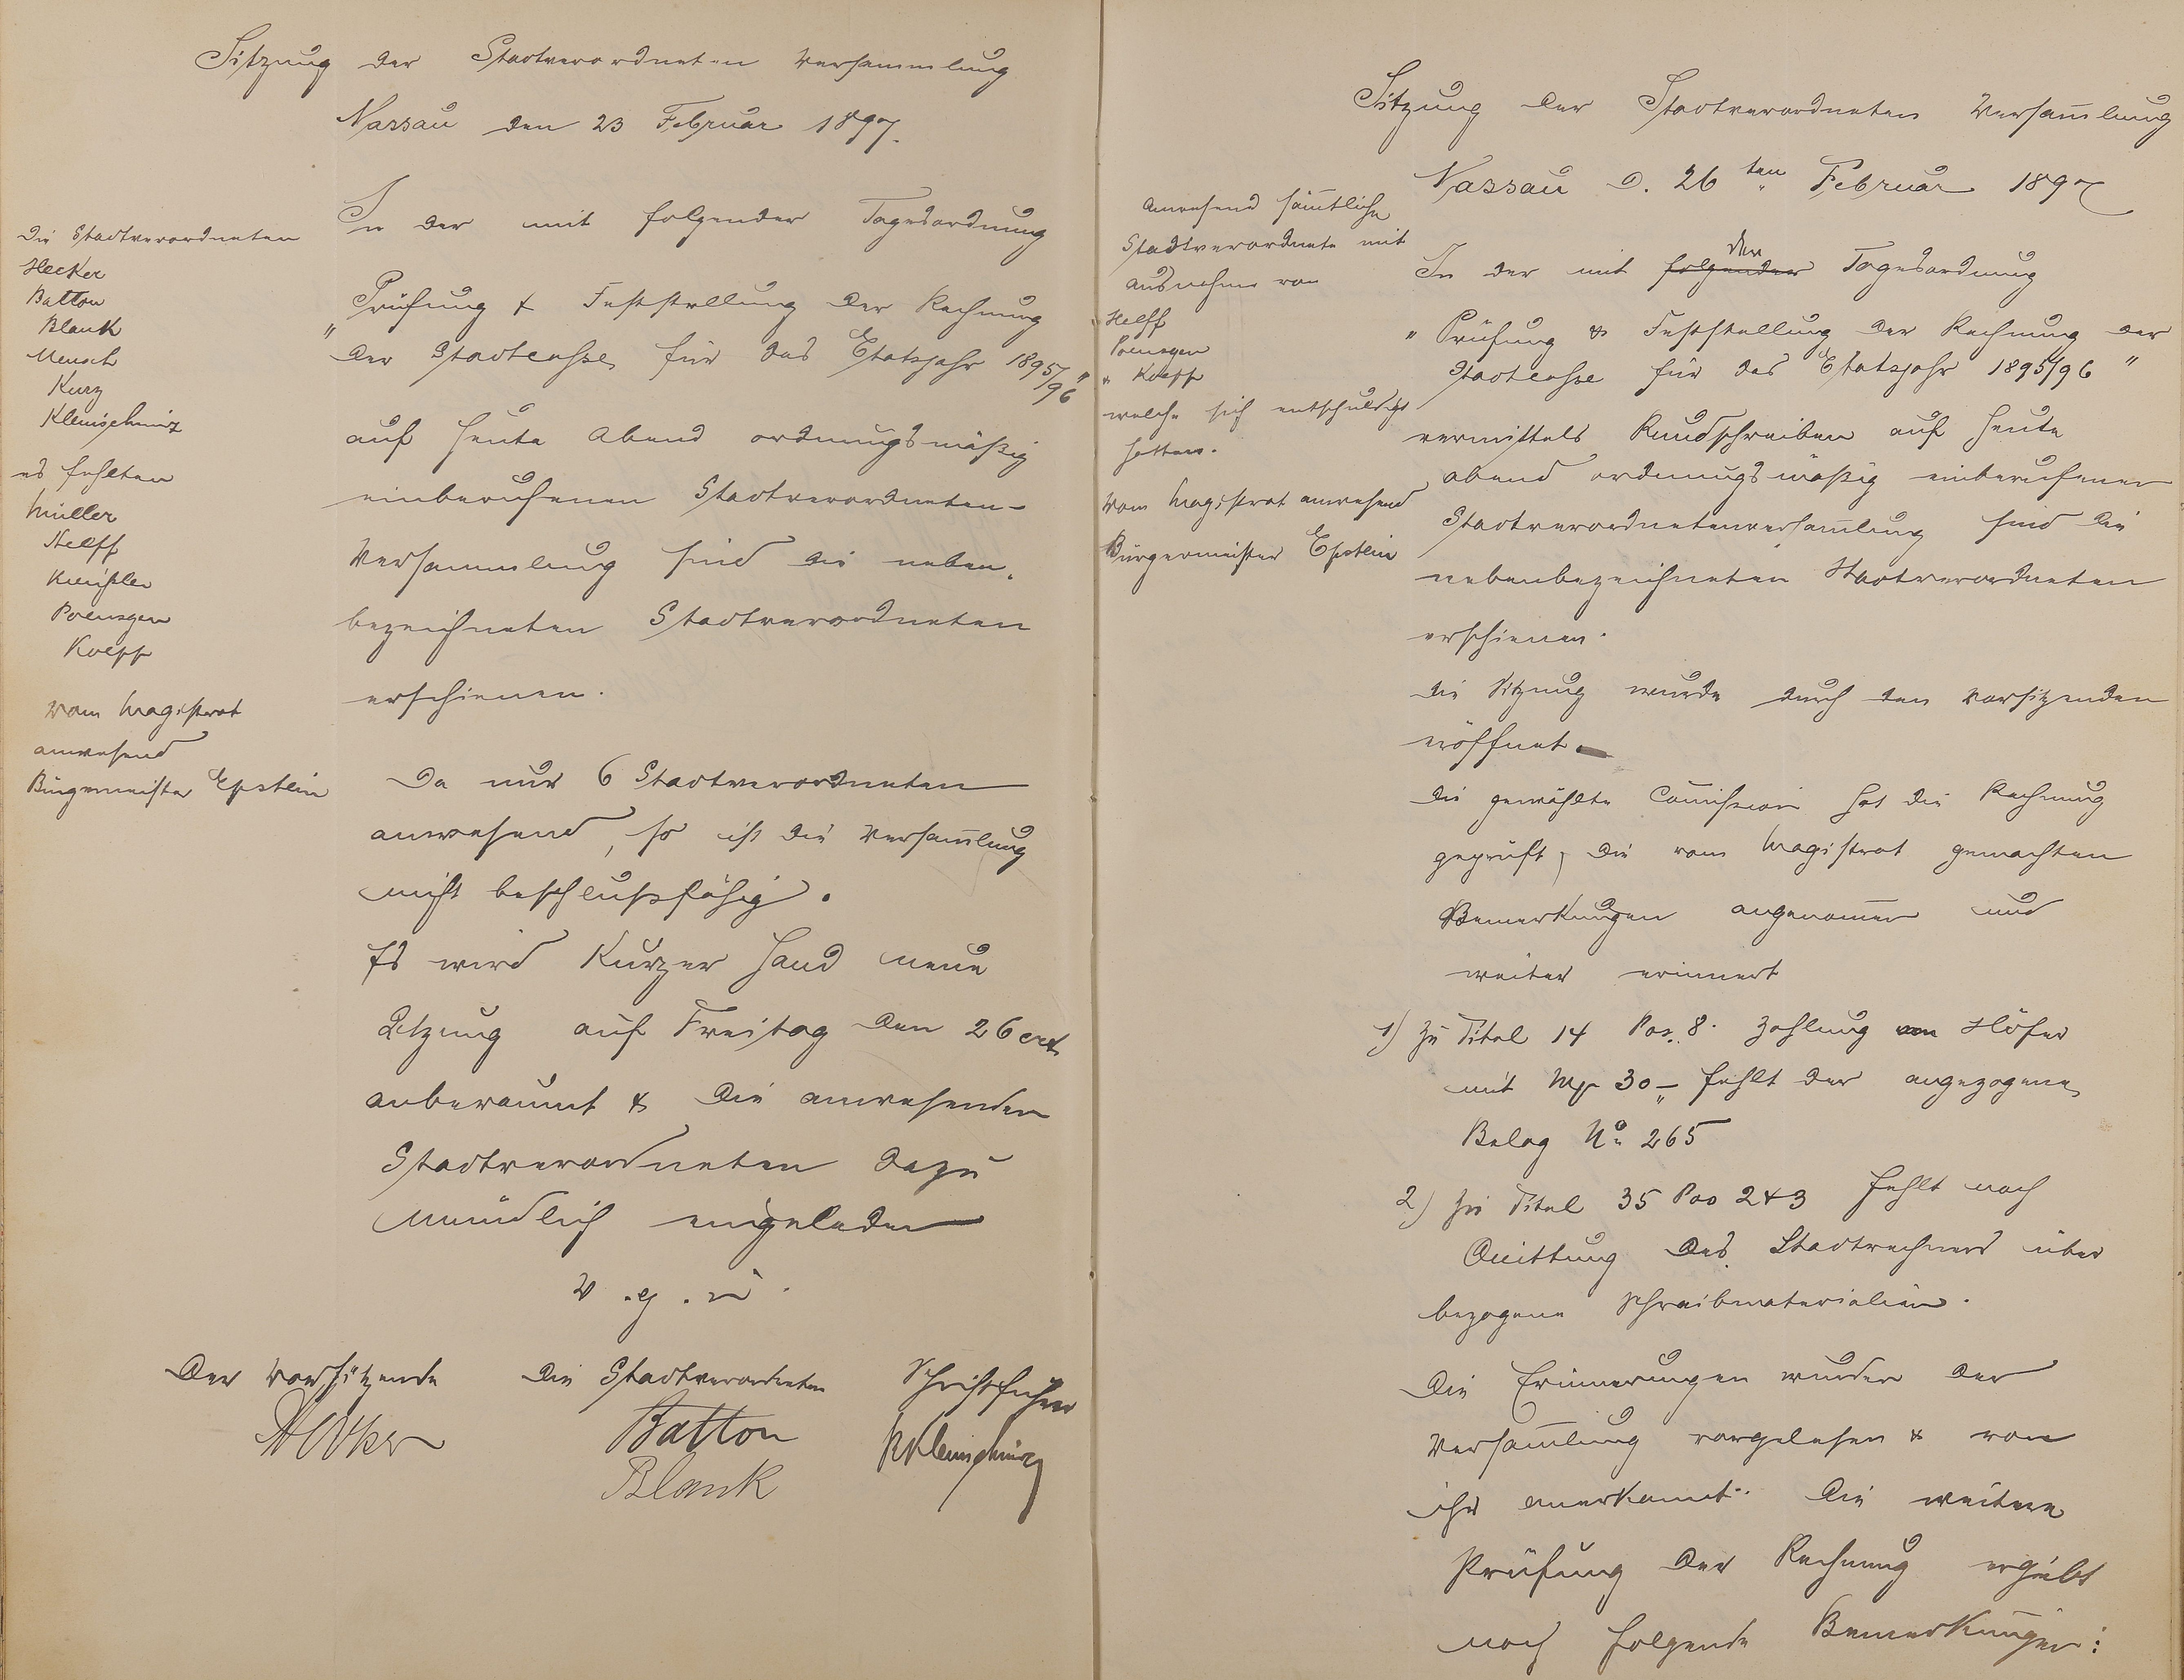 Sitzung der Stadtverordneten Versammlung
Nassau den 23 Februar 1897.
Die Stadtverordneten
Hecker
Batton
Blank
Mensch
Kurz
Kleinschmidt
es fehlten
Müller
Helff
Poensgen
Koepp
Vom Magistrat
anwesend
Bürgermeister Epstein
In der mit folgender Tagesordnung
„Prüfung & Feststellung der Rechnung
der Stadtcasse für das Etatsjahr 1895/96"
auf heute Abend ordnungsmäßig
einberufenen Stadtverordneten-
Versammlung sind die neben-
bezeichneten Stadtverordneten
erschienen.
Da nur 6 Stadtverordneten
anwesend, so ist die Versam̅lung
nicht beschlußfähig.
Es wird Kurzer Hand neue
Sitzung auf Freitag den 26 crt.
anberaumt & die anwesenden
Stadtverordneten dazu
mündlich eingeladen
v. g. u.
Der Vorsitzende
Hecker
Die Stadtverordneten
Batton
Blank
Schriftführer
Sitzung der Stadtverordneten Versam̅lung
Nassau d. 26ten Februar 1897
Anwesend säm̅tliche
Stadtverordnete mit
Ausnahme von
Helff
Poensgen
& Koepp
welche sich entschuldigt
hatten.
Vom Magistrat anwesend
Bürgermeister Epstein
In der mit folgender der Tagesordnung
„Prüfung & Feststellung der Rechnung der
Stadtcasse für das Etatsjahr 1895/96"
vermittels Rundschreiben auf heute
abend ordnungsmäßig einberufenen
Stadtverordnetenversam̅lung sind die
nebenbezeichneten Stadtverordneten
erschienen.
Die Sitzung wurde durch den Vorsitzenden
eröffnet.
Die gewählte Com̅ission hat die Rechnung
geprüft, die vom Magistrat gemachten
Bemerkungen angenom̅en und
weiter erinnert
1) zu Titel 14 Pos. 8. Zahlung von Höfer
mit Mk 30.- fehlt der angezogene
Belag No 265
2) zu Titel 35 Pos 2 & 3 fehlt noch
Quittung des Stadtrechners über
bezogene Schreibmaterialien.
Die Erinnerungen wurden der
Versam̅lung vorgelesen & von
ihr anerkannt. Die weitere
Prüfung der Rechnung ergiebt
noch folgende Bemerkungen: